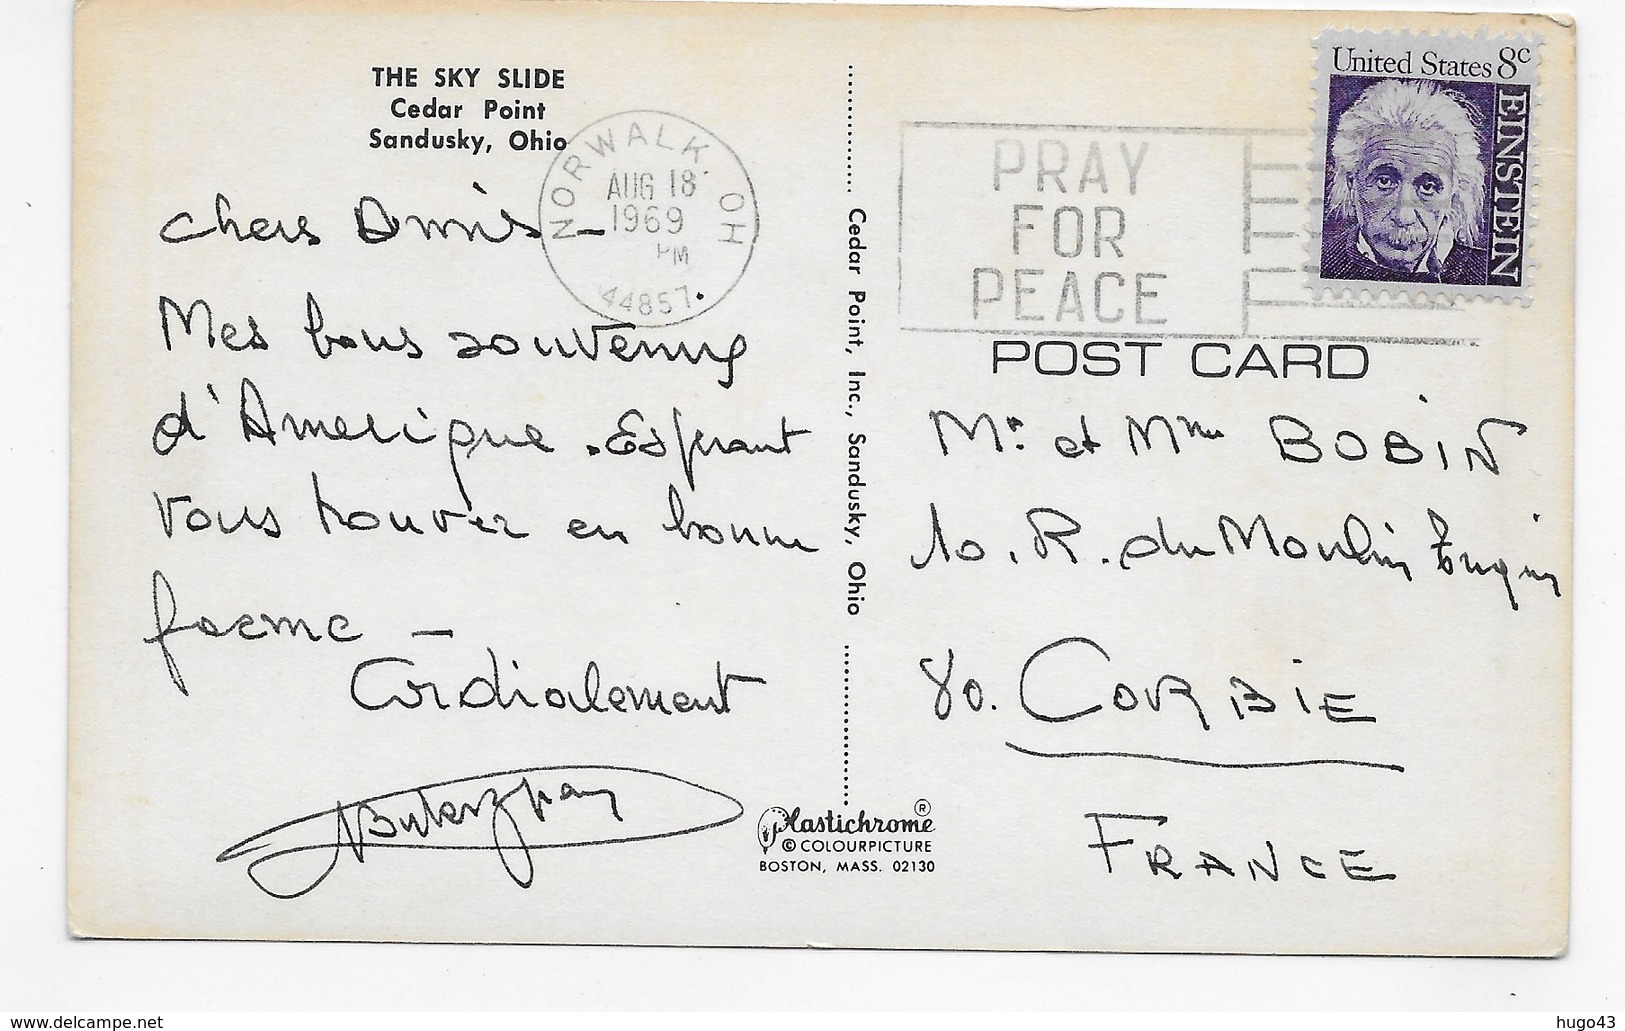 THE SKY SLIDE
Cedar Point
Sandusky, Ohio
NORWALK OH
AUG 18
1969
PM
44857.
Chers Amis -
Mes bons souvenirs
d'Amerique . Esperant
vous trouver en bonne
forme -
Cordialement
Cedar Point, Inc., Sandusky, Ohio
PRAY
FOR
PEACE
United States 8c
EINSTEIN
POST CARD
Mr. et Mme BOBIN
10. R. du Moulin
80. CORBIE
FRANCE
Plastichrome ®
© COLOURPICTURE
BOSTON, MASS. 02130
delcampe.net
hugo43